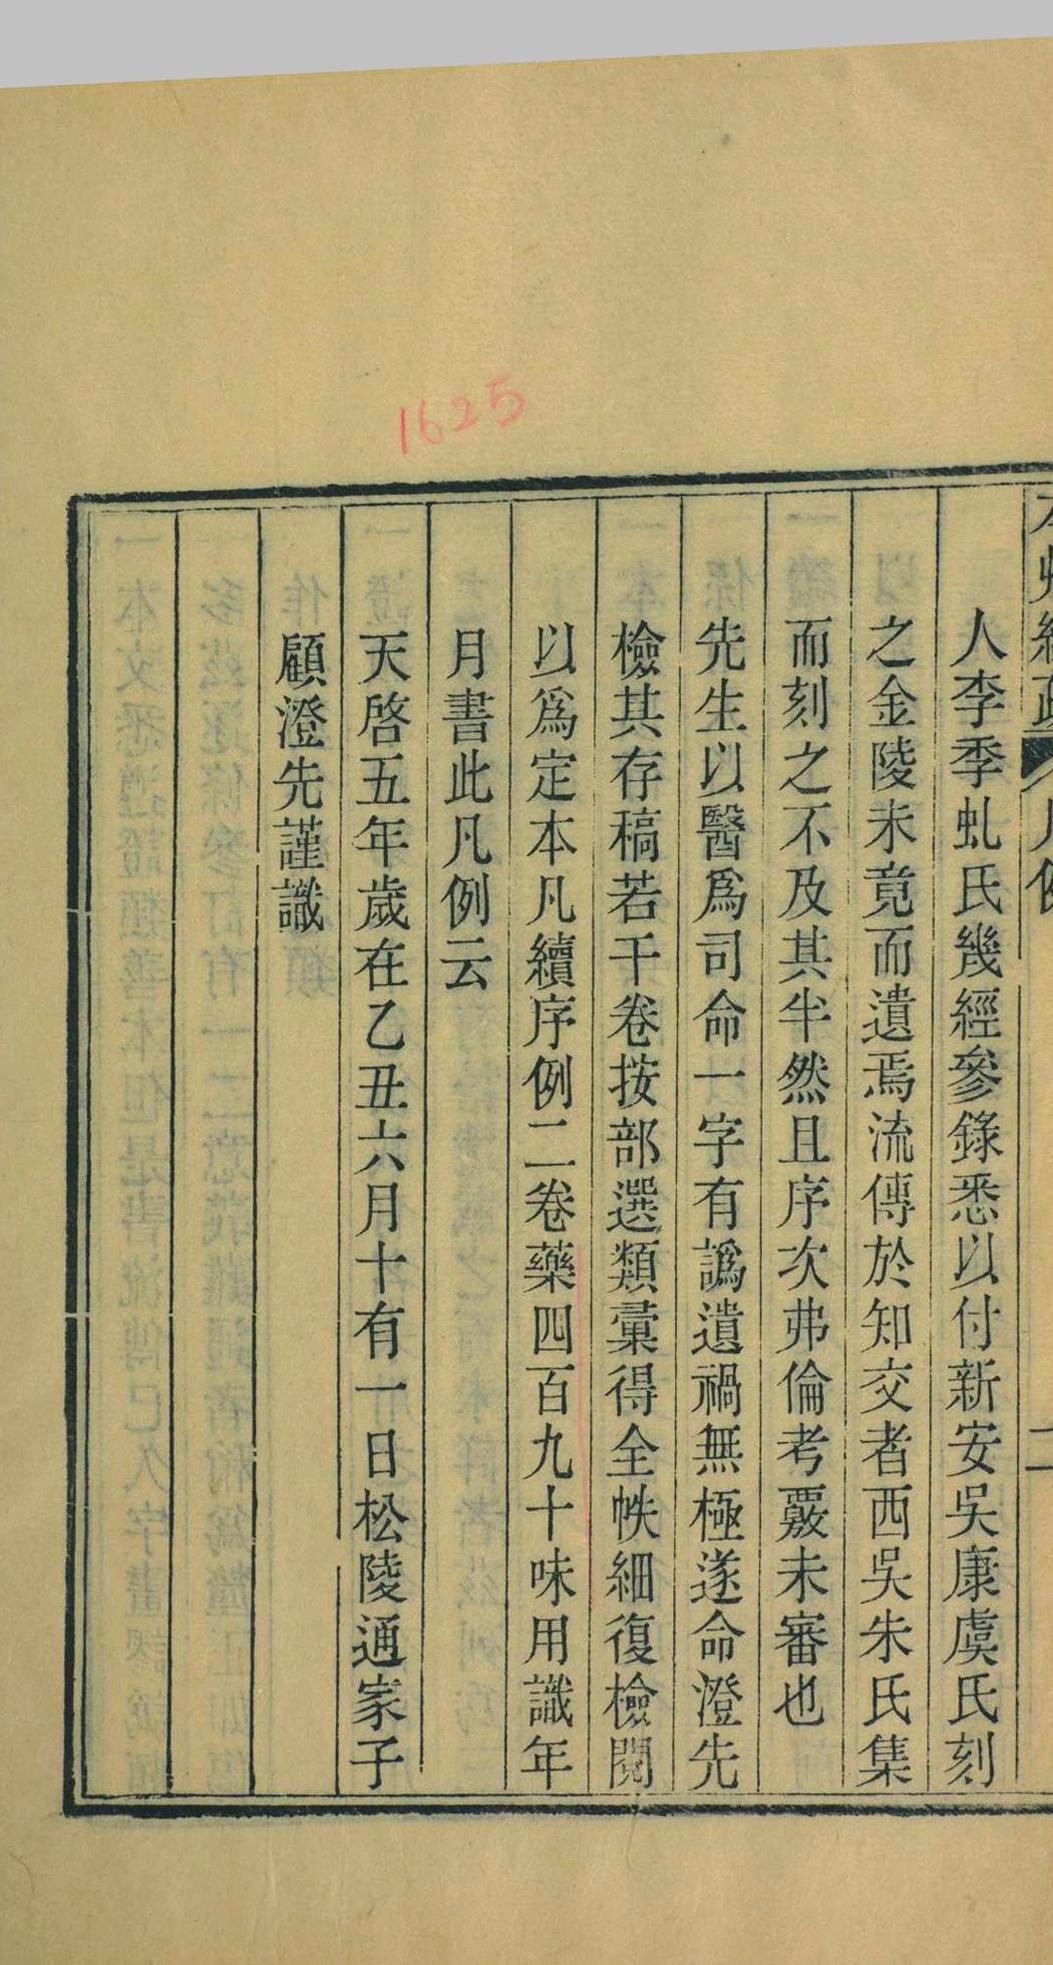 1625
人李季虬氏幾經參錄悉以付新安吳康虞氏刻
之金陵未竟而遺焉流傳於知交者西吳朱氏集
而刻之不及其半然且序次弗倫考覈未審也
先生以醫爲司命一字有譌遺禍無極遂命澄先
檢其存稿若干卷按部選類彙得全帙細復檢閱
以爲定本凡續序例二卷藥四百九十味用識年
月書此凡例云
天啓五年歲在乙丑六月十有一日松陵通家子
顧澄先謹識